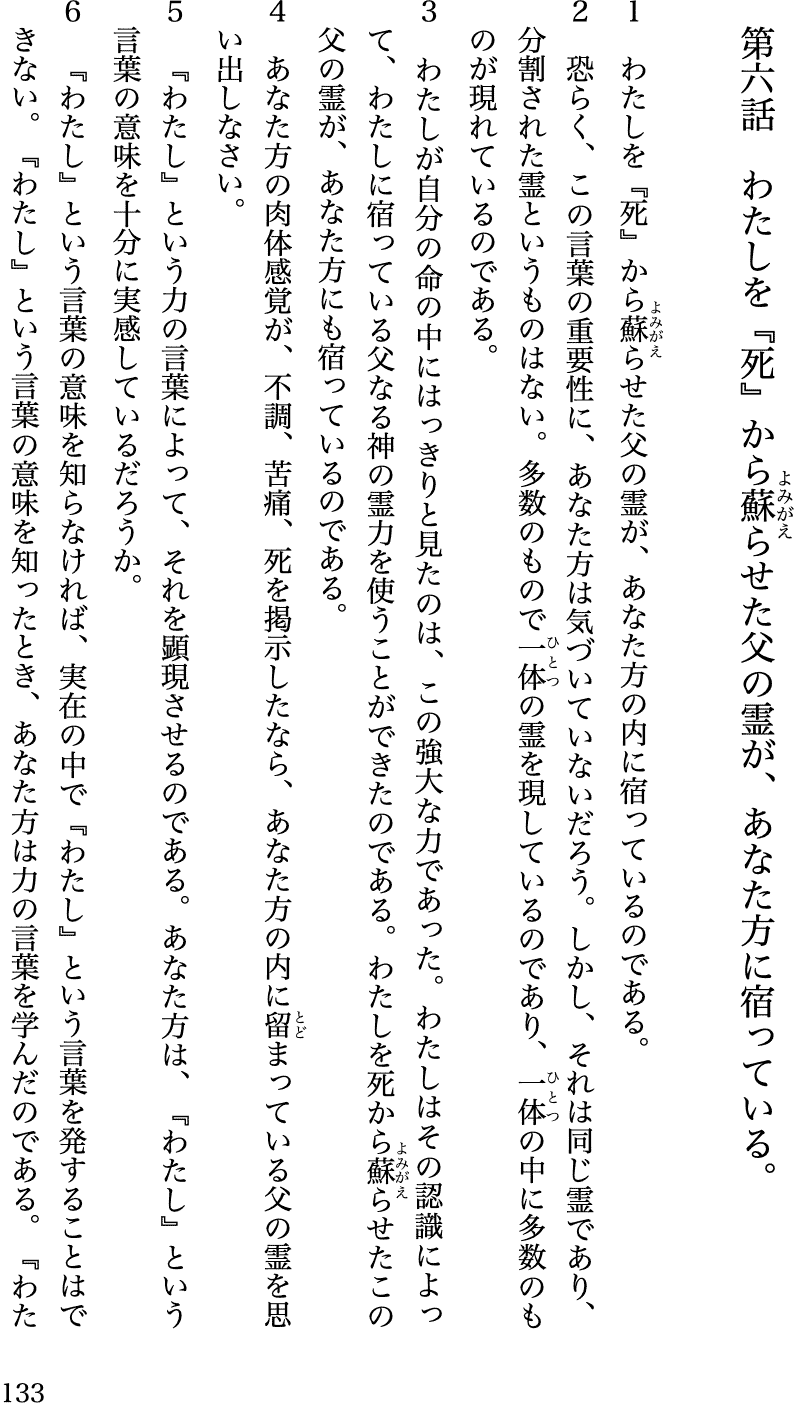 第六話　わたしを『死』から蘇らせた父の霊が、あなた方に宿っている。
よみがえ
1　わたしを『死』から蘇らせた父の霊が、あなた方の内に宿っているのである。
よみがえ
2　恐らく、この言葉の重要性に、あなた方は気づいていないだろう。しかし、それは同じ霊であり、
分割された霊というものはない。多数のもので一体の霊を現しているのであり、一体の中に多数のも
ひとつ
ひとつ
のが現れているのである。
3　わたしが自分の命の中にはっきりと見たのは、この強大な力であった。わたしはその認識によっ
て、わたしに宿っている父なる神の霊力を使うことができたのである。わたしを死から蘇らせたこの
よみがえ
父の霊が、あなた方にも宿っているのである。
4　あなた方の肉体感覚が、不調、苦痛、死を掲示したなら、あなた方の内に留まっている父の霊を思
とど
い出しなさい。
5　『わたし』という力の言葉によって、それを顕現させるのである。あなた方は、『わたし』という
言葉の意味を十分に実感しているだろうか。
6　『わたし』という言葉の意味を知らなければ、実在の中で『わたし』という言葉を発することはで
きない。『わたし』という言葉の意味を知ったとき、あなた方は力の言葉を学んだのである。『わた
133